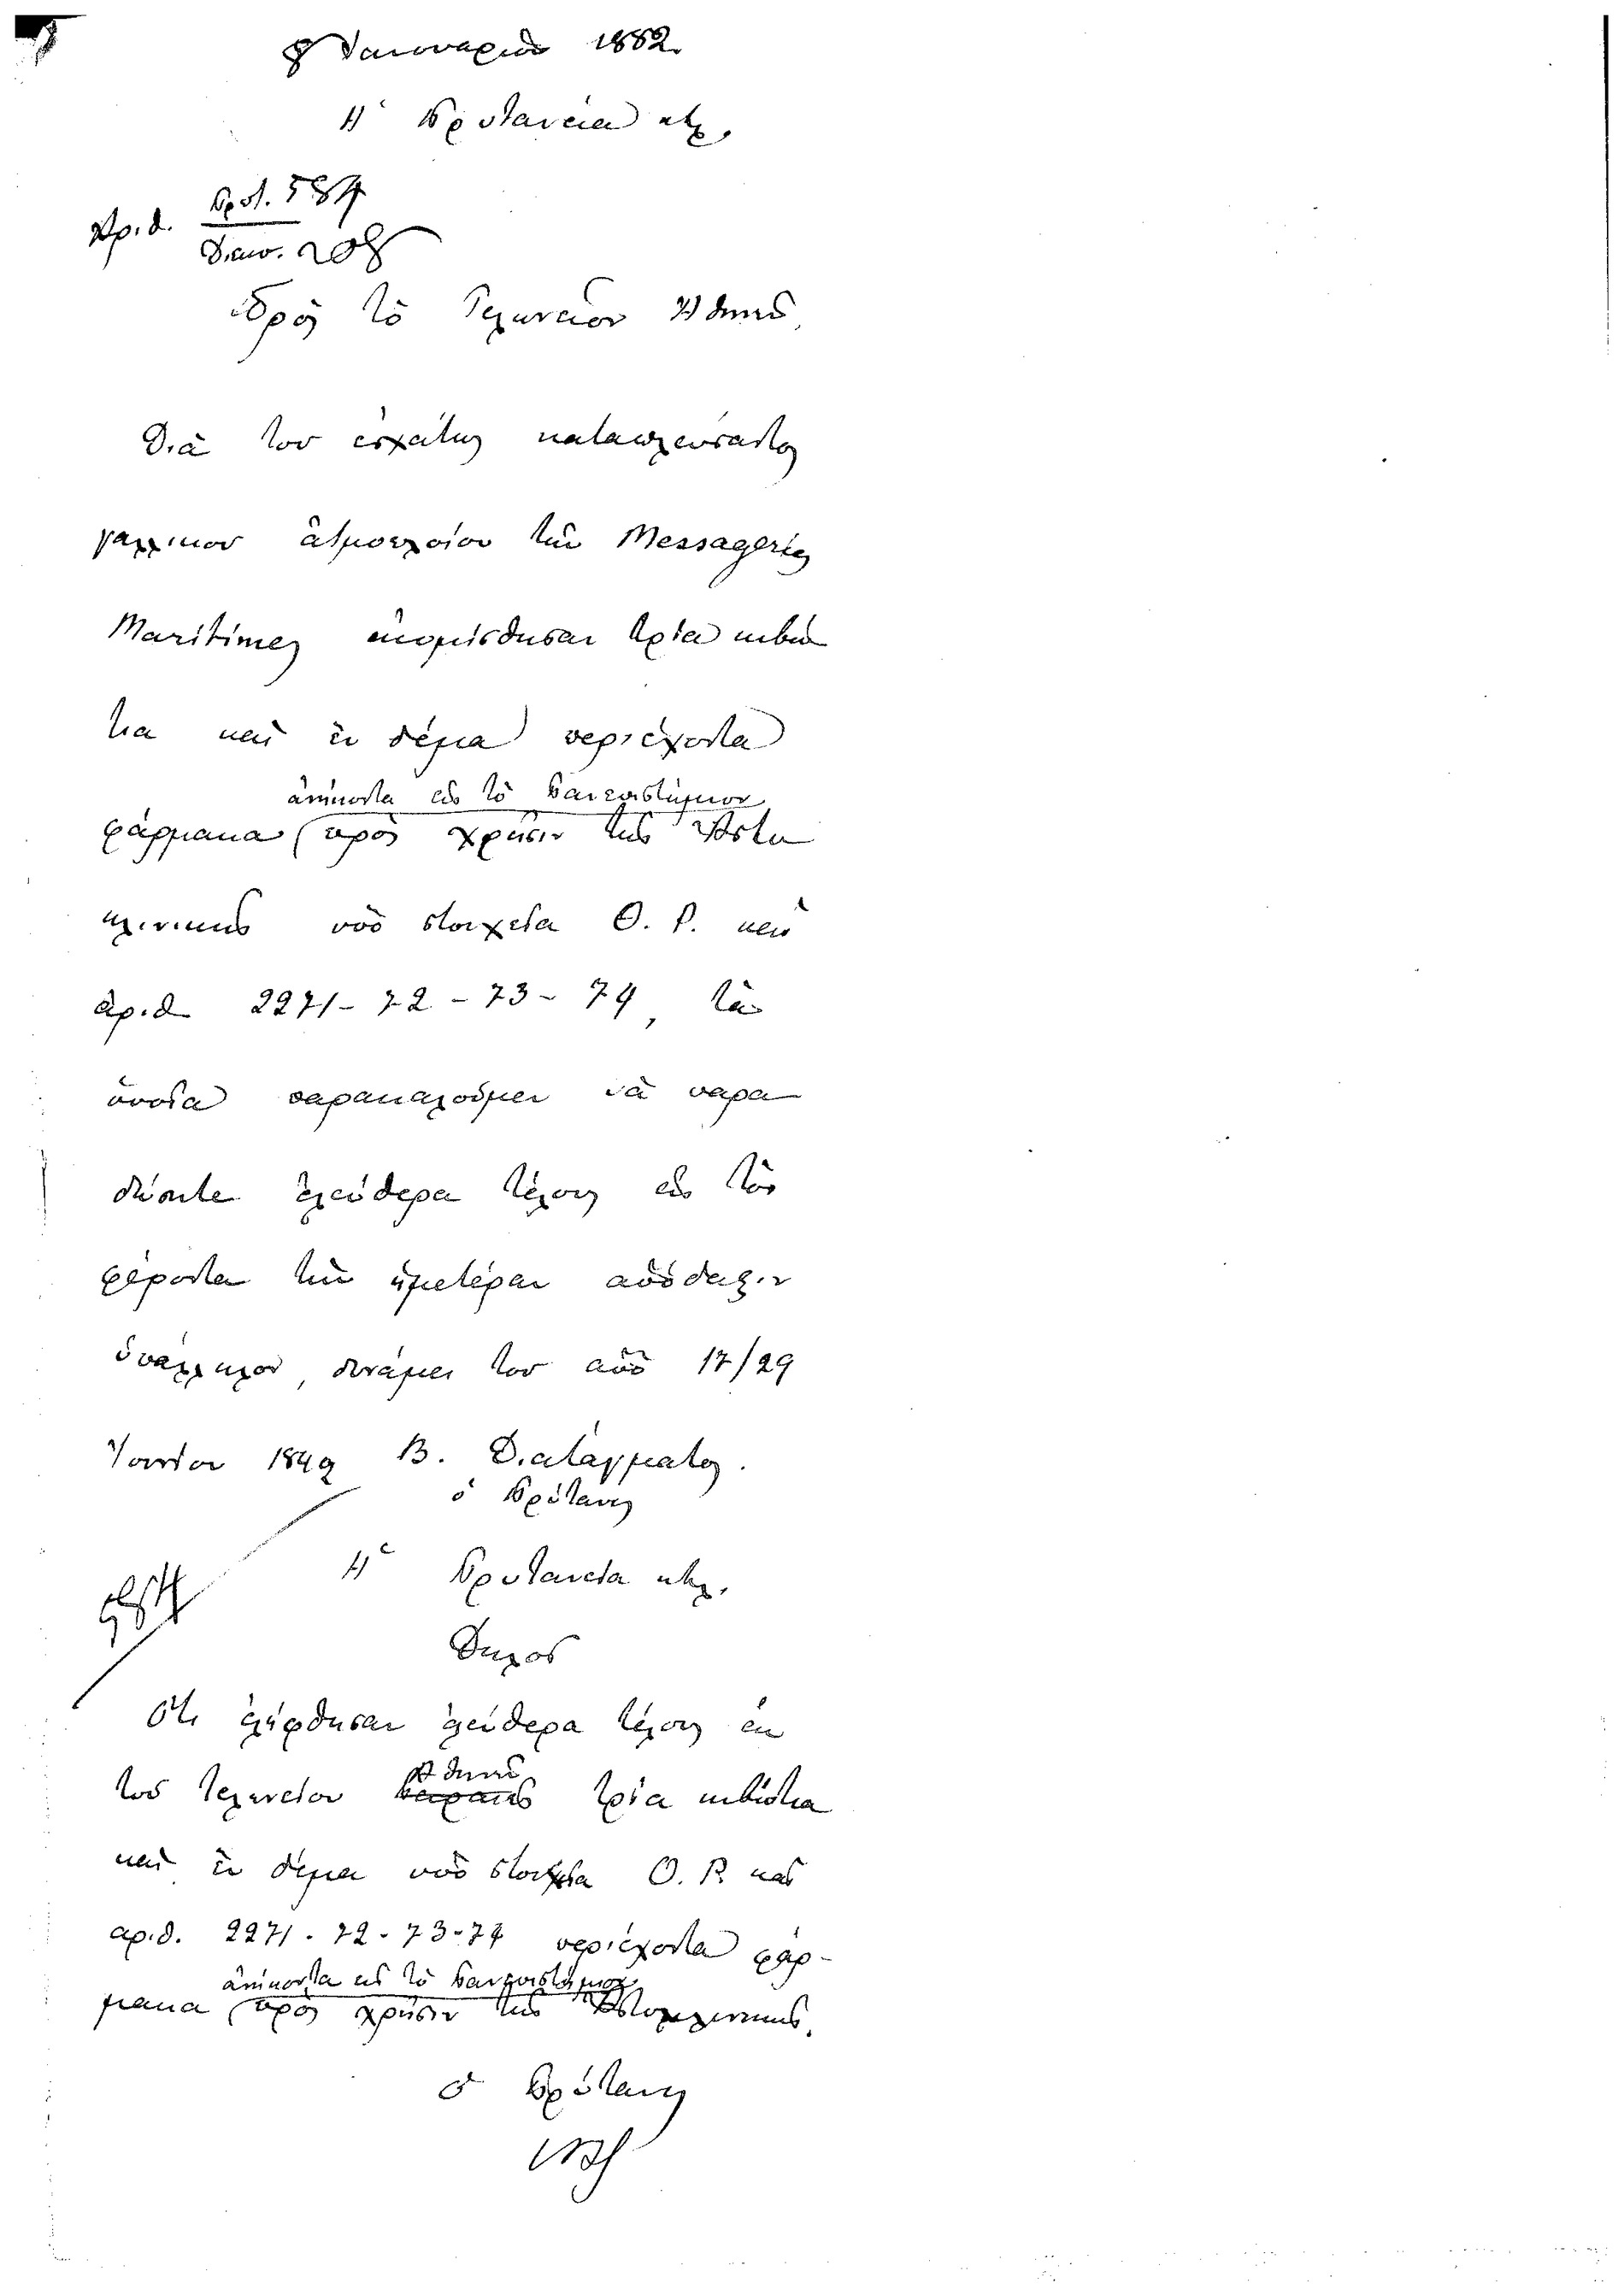 8 Ἰανουαρίου 1882
Ἡ Πρυτανεία κτλ.
Πρωτ. 584
Ἀριθ.
Διεκπ. 208
Πρὸς τὸ Τελωνεῖον Ἀθηνῶν
Διὰ τοῦ ἐσχάτως καταπλεύσαντος
γαλλικοῦ ἀτμοπλοίου τῶν Messageries
Maritimes ἐκομίσθησαν τρία κιβώ
τια καὶ ἓν δέμα περιέχοντα
ἀνήκοντα εἰς τὸ Πανεπιστήμιον
φάρμακα (πρὸς χρῆσιν τῆς Ἀστυ
κλινικῆς ὑπὸ στοιχεῖα O. P. καὶ
ἀριθ 2271-72-73-74, τὰ
ὁποῖα παρακαλοῦμεν νὰ παρα
δώσητε ἐλεύθερα τέλους εἰς τὸν
φέροντα τὴν ἡμετέραν ἀπόδειξιν
ὑπάλληλον, δυνάμει τοῦ ἀπὸ 17/29
Ἰουνίου 1842 Β. Διατάγματος.
ὁ Πρύτανις
Ἡ Πρυτανεία κτλ.
Δηλοῖ
Ὅτι ἐλήφθησαν ἐλεύθερα τέλους ἐκ
Ἀθηνῶν
τοῦ Τελωνείου Πειραιῶς τρία κιβώτια
καὶ ἓν δέμα ὑπὸ στοιχεῖα O. P. καὶ
ἀριθ. 2271-72-73-74 περιέχοντα φάρ-
ἀνήκοντα εἰς τὸ Πανεπιστήμιον
μακα (πρὸς χρῆσιν τῆς Ἀστυκλινικῆς.
ὁ Πρύτανις